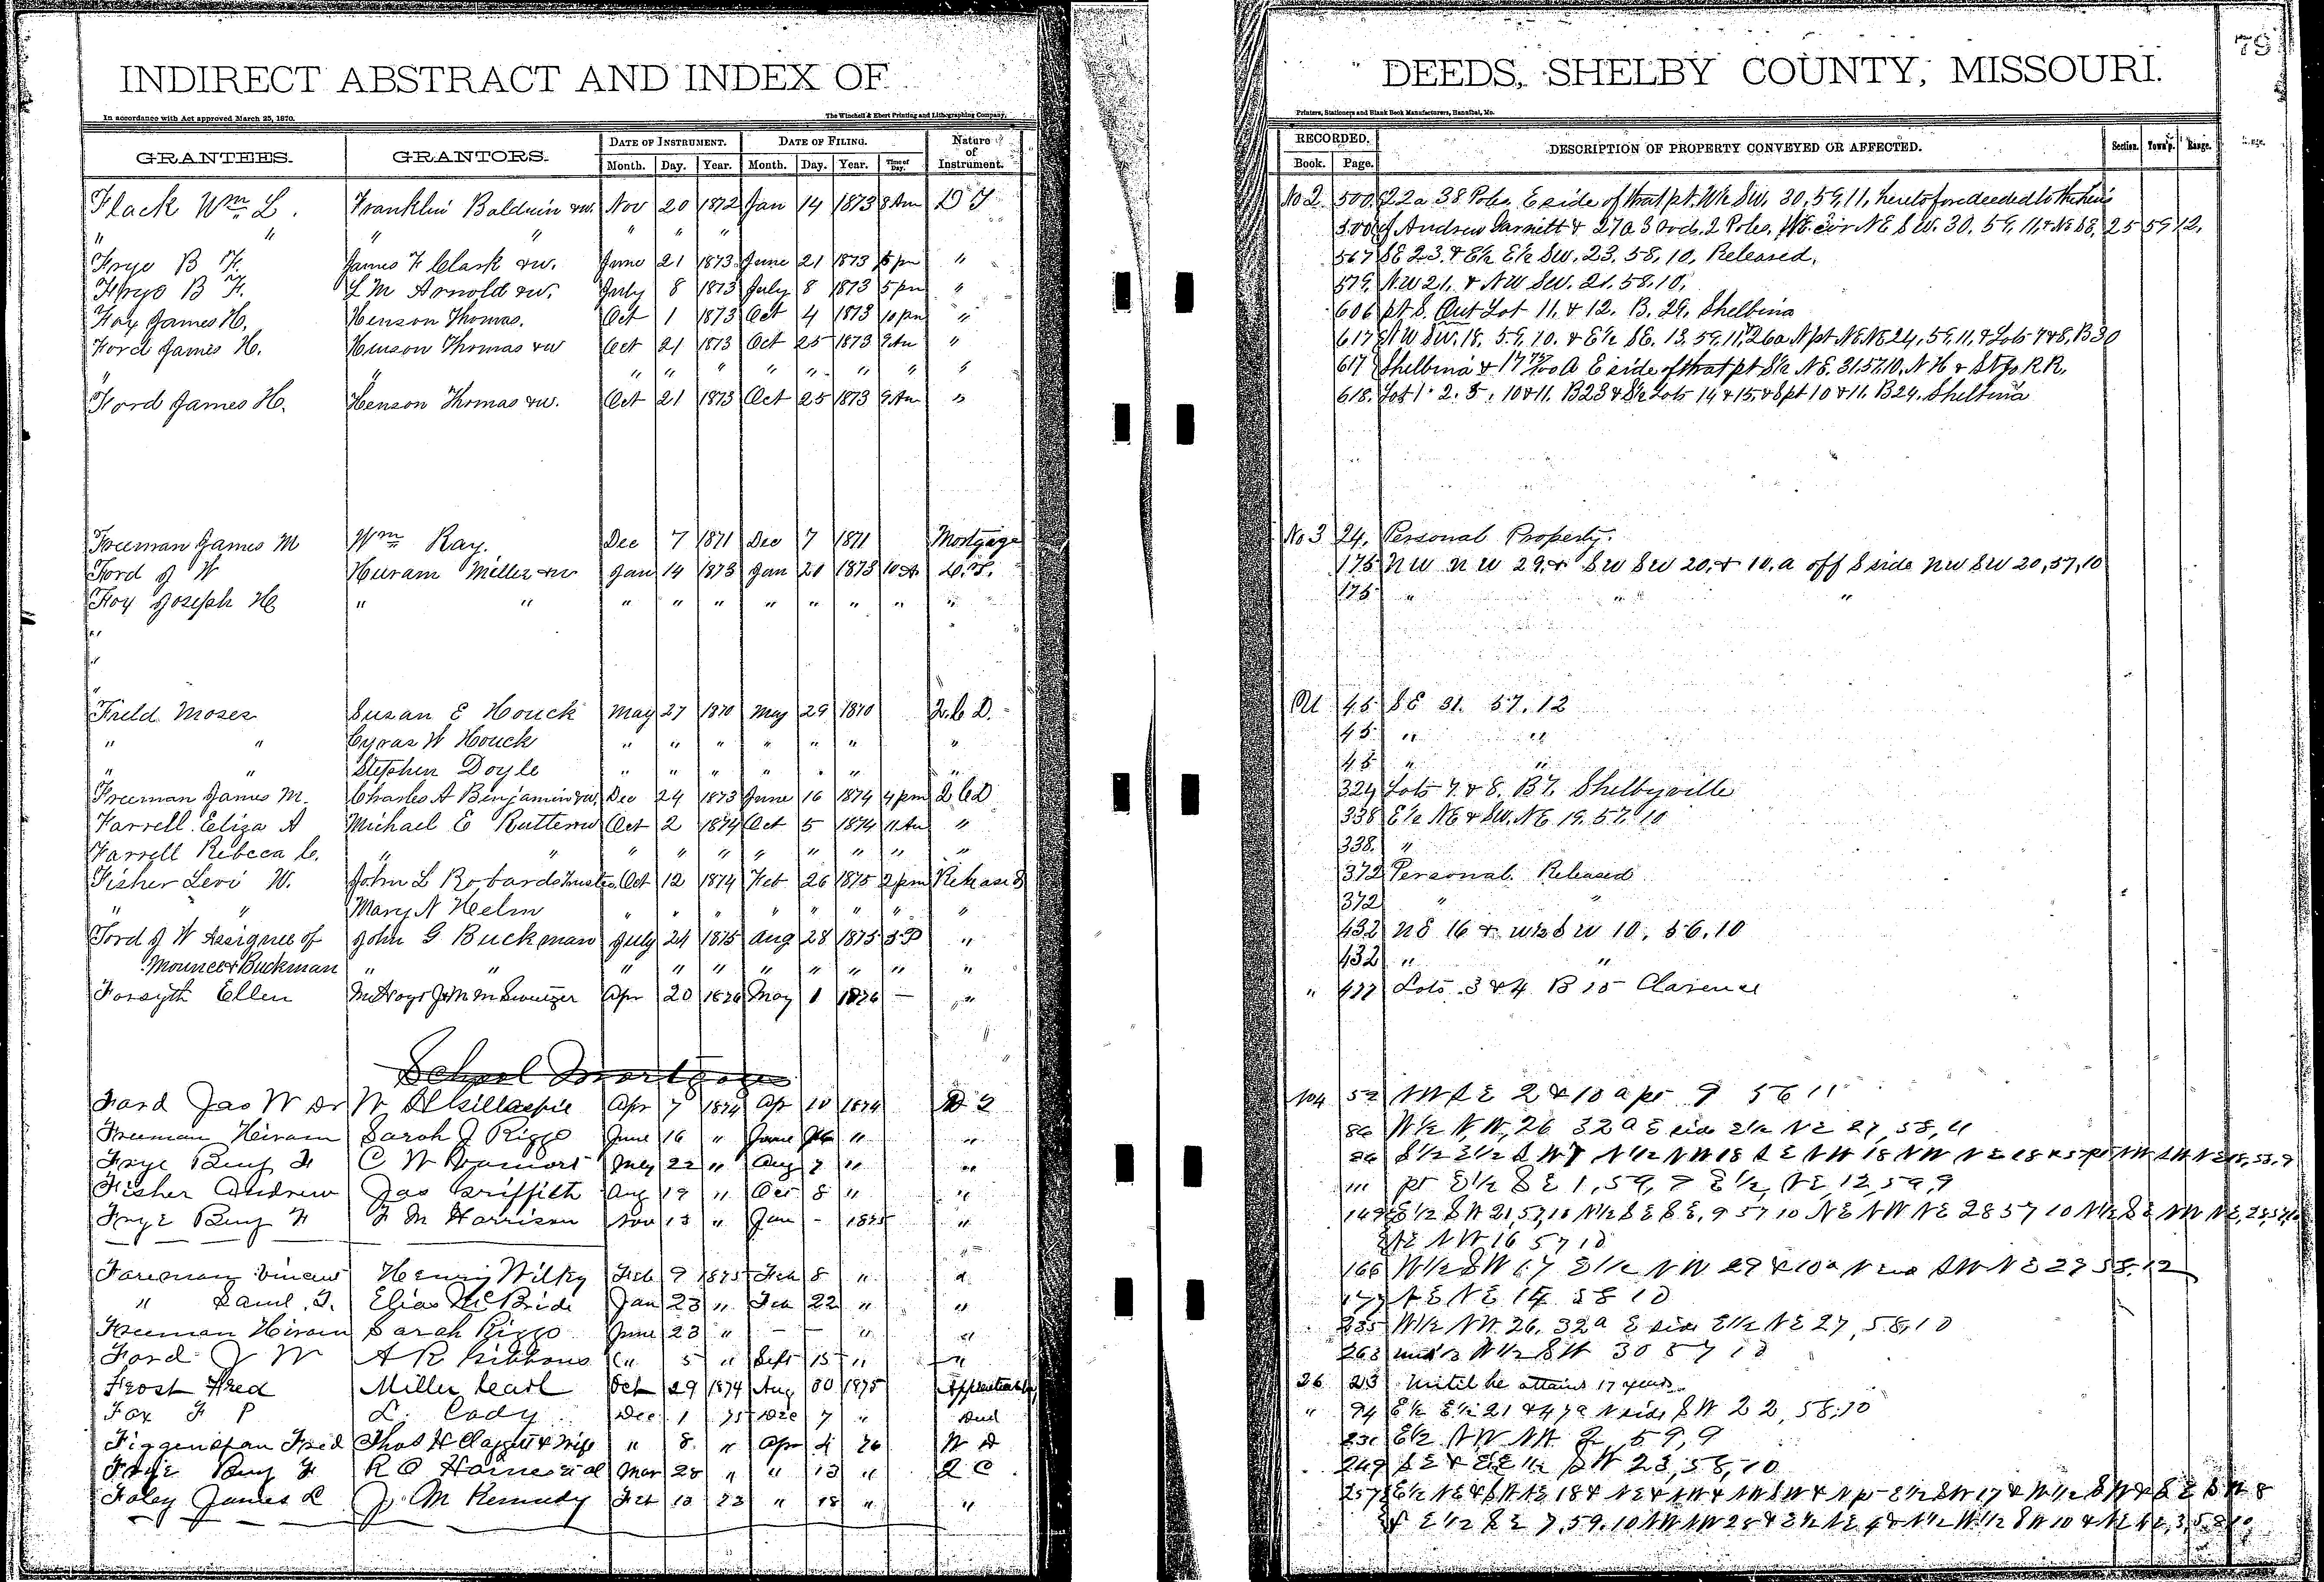 INDIRECT ABSTRACT AND INDEX OF
In accordance with Act approved March 25, 1870.
The Winchell & Ebert Printing and Lithographing Company,
GRANTEES. GRANTORS. DATE OF INSTRUMENT. DATE OF FILING. Nature of Instrument.
Month. Day. Year. Month. Day. Year. Time of Day.
Flack Wm L. Franklin Baldwin &w. Nov 20 1872 Jan 14 1873 8 Am D T
" " " " " " " "
Frye B F. James F. Clark &w. June 21 1873 June 21 1873 5 pm "
Frye B F. L M Arnold &w. July 8 1873 July 8 1873 5 pm "
Foy James H. Henson Thomas. Oct 1 1873 Oct 4 1873 "
Ford James H. Henson Thomas &w Oct 21 1873 Oct 25 1873 9 Am "
" " " " " " " " "
Ford James H. Henson Thomas &w. Oct 21 1873 Oct 25 1873 9 Am "
Freeman James M Wm Ray. Dec 7 1871 Dec 7 1871 Mortgage
Ford J W Huram Miller &w Jan 14 1873 Jan 20 1873 10 A D.T.
Foy Joseph H " " " " " " " " " "
Field Moses Susan E Houck May 27 1870 May 29 1870 Q.C.D.
" " Cyrus W Houck " " " " " " "
" " Stephen Doyle " " " " " " "
Freeman James M. Charles A Benjamin &w. Dec 24 1873 June 16 1874 4 pm Q C D
Farrell Eliza A Michael E Oct 2 1874 Oct 5 1874 11 Am "
Farrell Rebecca C. " " " " " " " " " "
Fisher Levi W. John L Robards Trustee Oct 12 1874 Feb 26 1875 2 pm Release D
" " Mary N Helm " " " " " " " "
Ford J W Assignee of John G Buckman July 24 1875 Aug 28 1875 3 P "
Mounce & Buckman " " " " " " " " " "
Forsyth Ellen Apr 20 1876 May 1 1876 — "
School Mortgage
Ford Jas W Dr W Gillaspie Apr 7 1874 Ap 10 1874 D T
Freeman Heiram Sarah J Riggs June 16 " June " "
Frye Benj F C W May 22 " Aug 7 " "
Fisher Andrew Jas Griffith Aug 19 " Oct 8 " "
Frye Benj F F M Harrison Nov 13 " Jan - 1875 "
Foreman Henry Wilky Feb 9 1875 Feb 8 "
" Saml. T. Elias McBride Jan 23 " Feb 22 " "
Freeman Hiram Sarah Riggs June 23 " — — " "
Ford J W A R Gibbons " 5 " Sept 15 " "
Frost Fred Miller Carl Oct 29 1874 Aug 30 1875
Fox F P L. Cody Dec 1 75 Dec 7 " Deed
Figgenspan Fred Thos H Claggett & Wife " 8. " Apr 4 76 W D
Frye Benj F R O Mar 28 " " 13 " Q C
Foley James L J. M Kennedy Feb 10 73 " 18 " "
DEEDS, SHELBY COUNTY, MISSOURI.
79
Printers, Stationers and Blank Book Manufacturers, Hannibal, Mo.
RECORDED. DESCRIPTION OF PROPERTY CONVEYED OR AFFECTED. Section. Town'p. Range.
Book. Page.
No 2. 500 22 a 38 Poles E side of that pt. W½ SW. 30, 59, 11, heretofore deeded to the heirs
500 of Andrew Garnett & 27 a 3 rods. 2 Poles, NE cor NE SW. 30. 59. 11. & NE SE. 25 59 12.
567 SE 23. & E½ E½ SW. 23. 58. 10. Released.
579. NW 21. & NW SW. 21. 58. 10.
606 pt S. Out Lot 11. & 12. B. 29. Shelbina
617 NW SW. 18. 59. 10. & E½ SE. 13. 59. 11, 26a N pt NE NE 24, 59, 11, & Lots 7 & 8, B 30
617 Shelbina & 17 A E side of that pt S½ NE. 31. 57. 10. N H & St Jo R R.
618. Lot 1. 2. 5. 10 & 11. B 23 & S½ Lots 14 & 15. & S pt 10 & 11. B 24. Shelbina
No 3 24. Personal Property.
175 NW NW 29. & SW SW 20. & 10. a off S side NW SW 20, 57, 10
175 " " "
45 SE 31. 57. 12
45 " "
45 " "
324 Lots 7. & 8. B 7. Shelbyville
338 E½ NE & SW. NE 19. 57. 10
338. "
372 Personal. Released
372 " "
432 NE 16 & W½ SW 10, 56, 10
432 " "
" 477 Lots 3 & 4 B 15 Clarence
No 4 52 NW SE 2 & 10 a pt 9 56 11
86 W½ N.W, 26 32 a E side E½ NE 27, 58, 11
111 pt E½ SE 1, 59, 9 E½ NE, 12, 59, 9
149 E½ SW 21, 57, 10 N½ SE SE, 9 57 10 NE NW NE 28 57 10
NE NW 16 57 10
166 W½ SW 17 E½ NW 29 & 10 a N end SW NE 29 58. 12
177 NE NE 14 58 10
235 W½ NW. 26. 32 a E side E½ NE 27, 58, 10
263 W½ SW 30 57 10
26 23 Until he attains 17 years
" 94 E½ E½ 21 & 47 a N side SW 22, 58, 10
231 E½ NW NW 2, 59, 9
249 SE & E½ SW 23, 58, 10